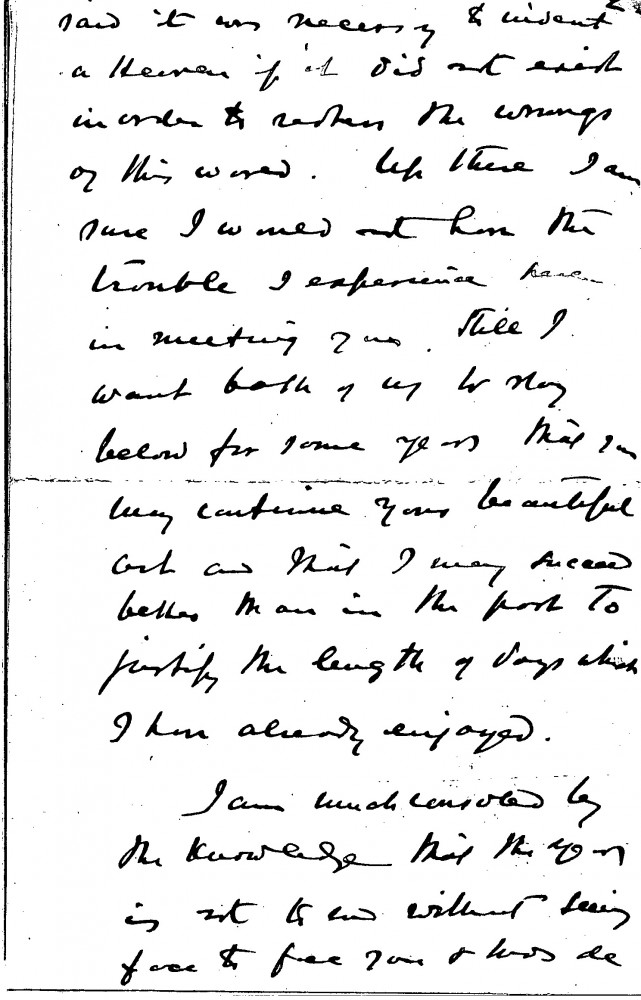 said it was necessary to invent
a Heaven if it did not exist
in order to redress the wrongs
of this world. Up there I am
sure I would not have the
trouble I experience here
in meeting you. Still I
want both of us to stay
below for some years that you
may continue your beautiful
art and that I may succeed
better than in the past to
justify the length of days which
I have already enjoyed.
I am much consoled by
the knowledge that the year
is not to end without seeing
face to face you &